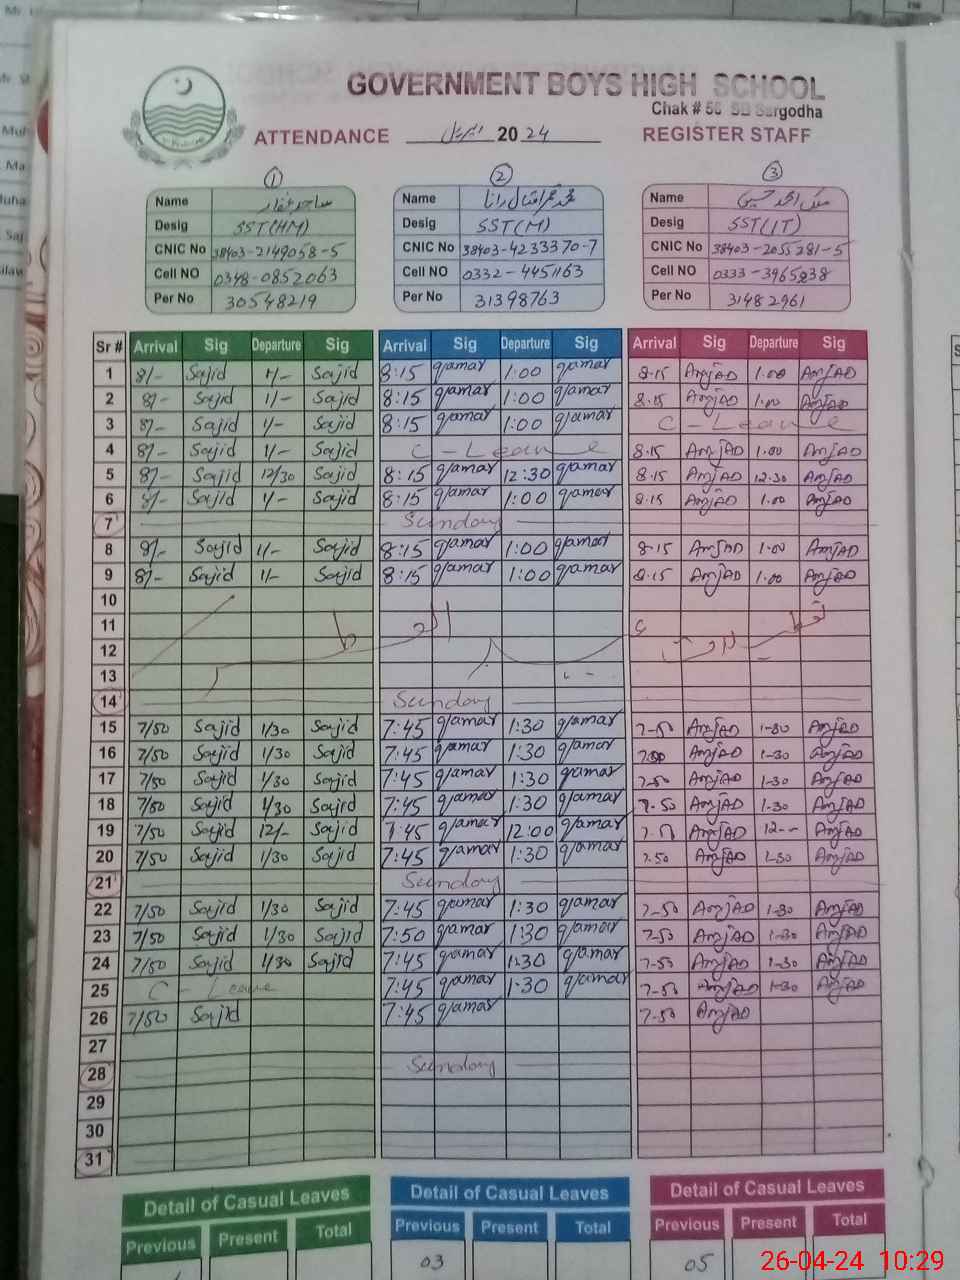 GOVERNMENT BOYS HIGH SCHOOL
Chak # 56 SB Sargodha
ATTENDANCE اپریل 2024 REGISTER STAFF
1 2 3
Name ساجد غفار Name محمد قمر اقبال رانا Name
Desig SST(HM) Desig SST(M) Desig SST(IT)
CNIC No 38403-2149058-5 CNIC No 38403-4233370-7 CNIC No 38403-2055281-5
Cell NO 0348-0852063 Cell NO 0332-4451163 Cell NO 0333-3965238
Per No 30548219 Per No 31398763 Per No 31482961
Sr # Arrival Sig Departure Sig Arrival Sig Departure Sig Arrival Sig Departure Sig
1 8/- Sajid 1/- Sajid 8:15 qamar 1:00 qamar 8-15 AmjAD 1.00 AmjAD
2 8/- Sajid 1/- Sajid 8:15 qamar 1:00 qamar 8.15 AmjAD 1.00 AmjAD
3 8/- Sajid 1/- Sajid 8:15 qamar 1:00 qamar C-Leave
4 8/- Sajid 1/- Sajid C-Leave 8.15 AmjAD 1.00 AmjAD
5 8/- Sajid 12/30 Sajid 8:15 qamar 12:30 qamar 8.15 AmjAD 12.30 AmjAD
6 8/- Sajid 1/- Sajid 8:15 qamar 1:00 qamar 8.15 AmjAD 1.00 AmjAD
7 Sunday
8 8/- Sajid 1/- Sajid 8:15 qamar 1:00 qamar 8-15 AmjAD 1.00 AmjAD
9 8/- Sajid 1/- Sajid 8:15 qamar 1:00 qamar 8.15 AmjAD 1.00 AmjAD
10
11
12
13
14 Sunday
15 7/50 Sajid 1/30 Sajid 7:45 qamar 1:30 qamar 7-50 AmjAD 1-30 AmjAD
16 7/50 Sajid 1/30 Sajid 7:45 qamar 1:30 qamar 7.50 AmjAD 1-30 AmjAD
17 7/50 Sajid 1/30 Sajid 7:45 qamar 1:30 qamar 7-50 AmjAD 1-30 AmjAD
18 7/50 Sajid 1/30 Sajid 7:45 qamar 1:30 qamar 7-50 AmjAD 1-30 AmjAD
19 7/50 Sajid 12/- Sajid 7:45 qamar 12:00 qamar AmjAD 12-- AmjAD
20 7/50 Sajid 1/30 Sajid 7:45 qamar 1:30 qamar 7.50 AmjAD 1-30 AmjAD
21 Sunday
22 7/50 Sajid 1/30 Sajid 7:45 qamar 1:30 qamar 7-50 AmjAD 1-30 AmjAD
23 7/50 Sajid 1/30 Sajid 7:50 qamar 1:30 qamar 7-50 AmjAD 1-30 AmjAD
24 7/50 Sajid 1/30 Sajid 7:45 qamar 1:30 qamar 7-50 AmjAD 1-30 AmjAD
25 C-Leave 7:45 qamar 1:30 qamar 7-50 AmjAD 1-30 AmjAD
26 7/50 Sajid 7:45 qamar 7-50 AmjAD
27
28 Sunday
29
30
31
Detail of Casual Leaves Detail of Casual Leaves Detail of Casual Leaves
Previous Present Total Previous Present Total Previous Present Total
03 05
26-04-24 10:29